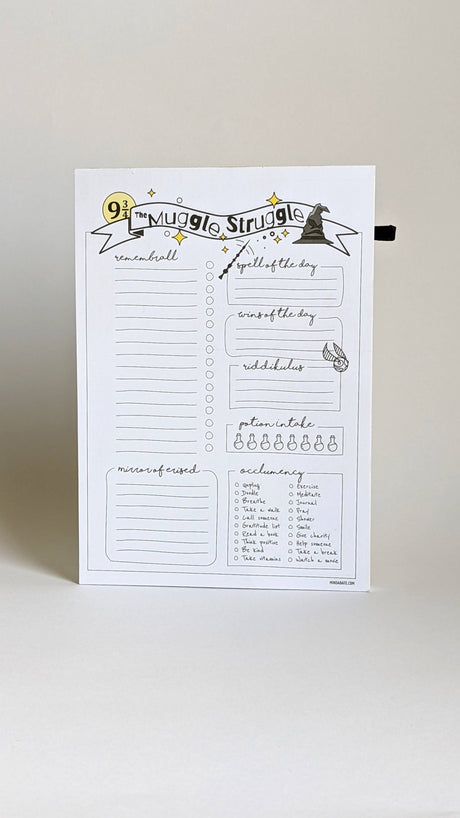 9 3/4
The Muggle Struggle
remembrall
spell of the day
wins of the day
riddikulus
potion intake
mirror of erised
occlumency
Unplug
Doodle
Breathe
Take a walk
Call someone
Gratitude list
Read a book
Think positive
Be kind
Take vitamins
Exercise
Meditate
Journal
Pray
Shower
Smile
Give charity
Help someone
Take a break
Watch a movie